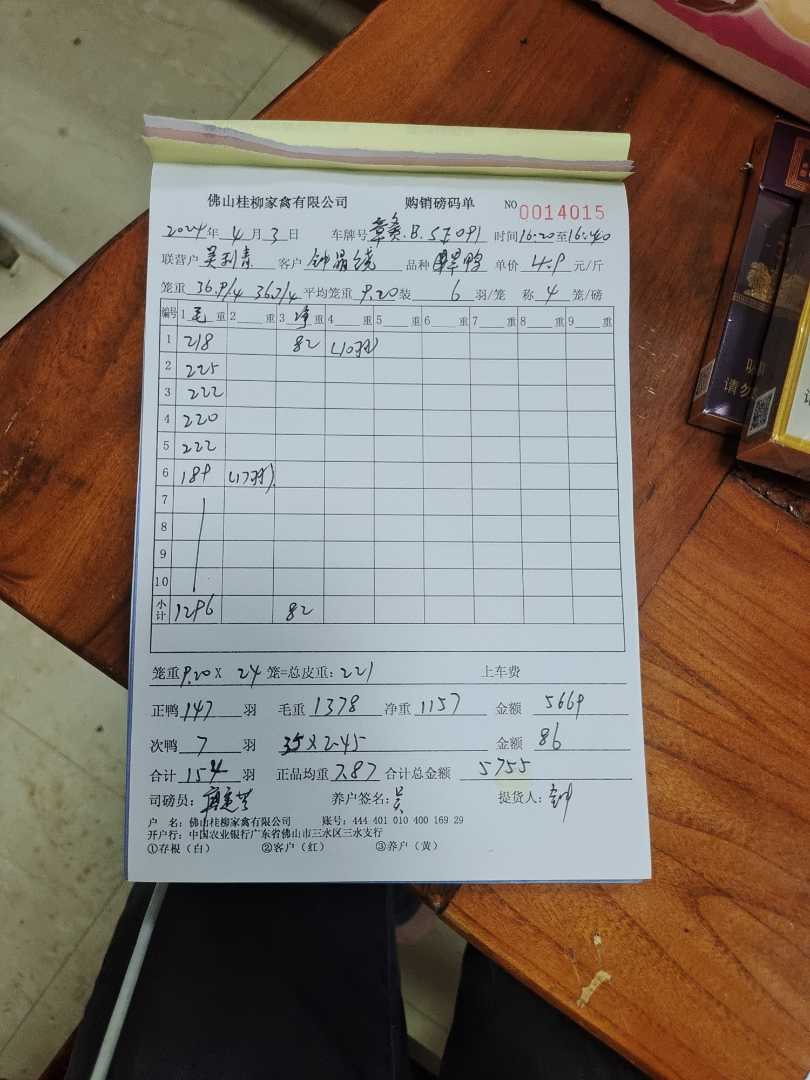 佛山桂柳家禽有限公司 购销磅码单 NO 0014015
2024年 4月 3日 车牌号 赣.B.5E091 时间16:20至16:40
联营户 吴利青 客户 品种 旱鸭 单价 4.9 元/斤
笼重 36.9/4 36.7/4 平均笼重 9.20 装 6 羽/笼 称 4 笼/磅
编号 1 毛 重 2 重 3 净 重 4 重 5 重 6 重 7 重 8 重 9 重
1 218 82 (10羽)
2 225
3 222
4 220
5 222
6 189 (17羽)
7
8
9
10
小计 1296 82
笼重 9.20 X 24 笼=总皮重: 221 上车费
正鸭 147 羽 毛重 1378 净重 1157 金额 5669
次鸭 7 羽 35X2.45 金额 86
合计 154 羽 正品均重 7.87 合计总金额 5755
司磅员: 养户签名: 吴 提货人: 钟
户 名: 佛山桂柳家禽有限公司 账号: 444 401 010 400 169 29
开户行: 中国农业银行广东省佛山市三水区三水支行
①存根（白） ②客户（红） ③养户（黄）
请勿